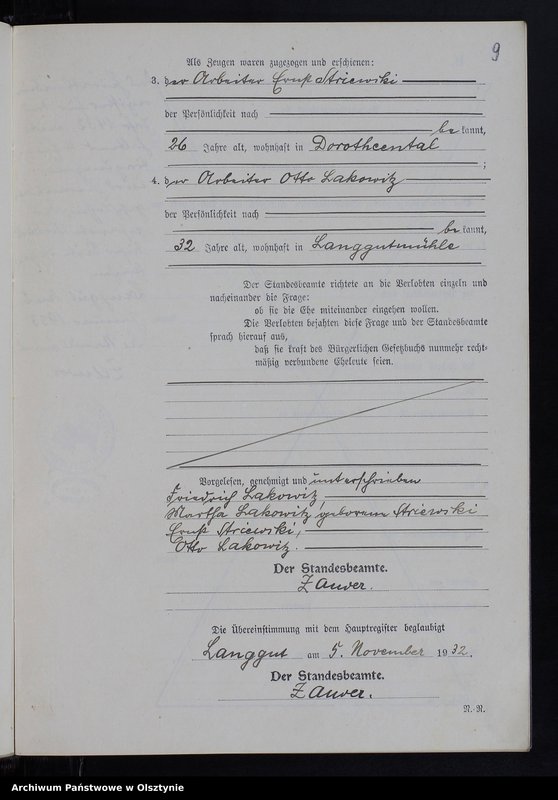 9
Als Zeugen waren zugezogen und erschienen:
3. der Arbeiter Ernst Striewski
der Persönlichkeit nach
bekannt,
26 Jahre alt, wohnhaft in Dorotheental
;
4. der Arbeiter Otto Lakowitz
der Persönlichkeit nach
bekannt,
32 Jahre alt, wohnhaft in Langgutmühle
Der Standesbeamte richtete an die Verlobten einzeln und
nacheinander die Frage:
ob sie die Ehe miteinander eingehen wollen.
Die Verlobten bejahten diese Frage und der Standesbeamte
sprach hierauf aus,
daß sie kraft des Bürgerlichen Gesetzbuchs nunmehr recht-
mäßig verbundene Eheleute seien.
Vorgelesen, genehmigt und unterschrieben
Friedrich Lakowitz
Martha Lakowitz geborene Striewski
Ernst Striewski,
Otto Lakowitz.
Der Standesbeamte.
Die Übereinstimmung mit dem Hauptregister beglaubigt
Langgut am 5. November 1932.
Der Standesbeamte.
R.-R.
Archiwum Państwowe w Olsztynie